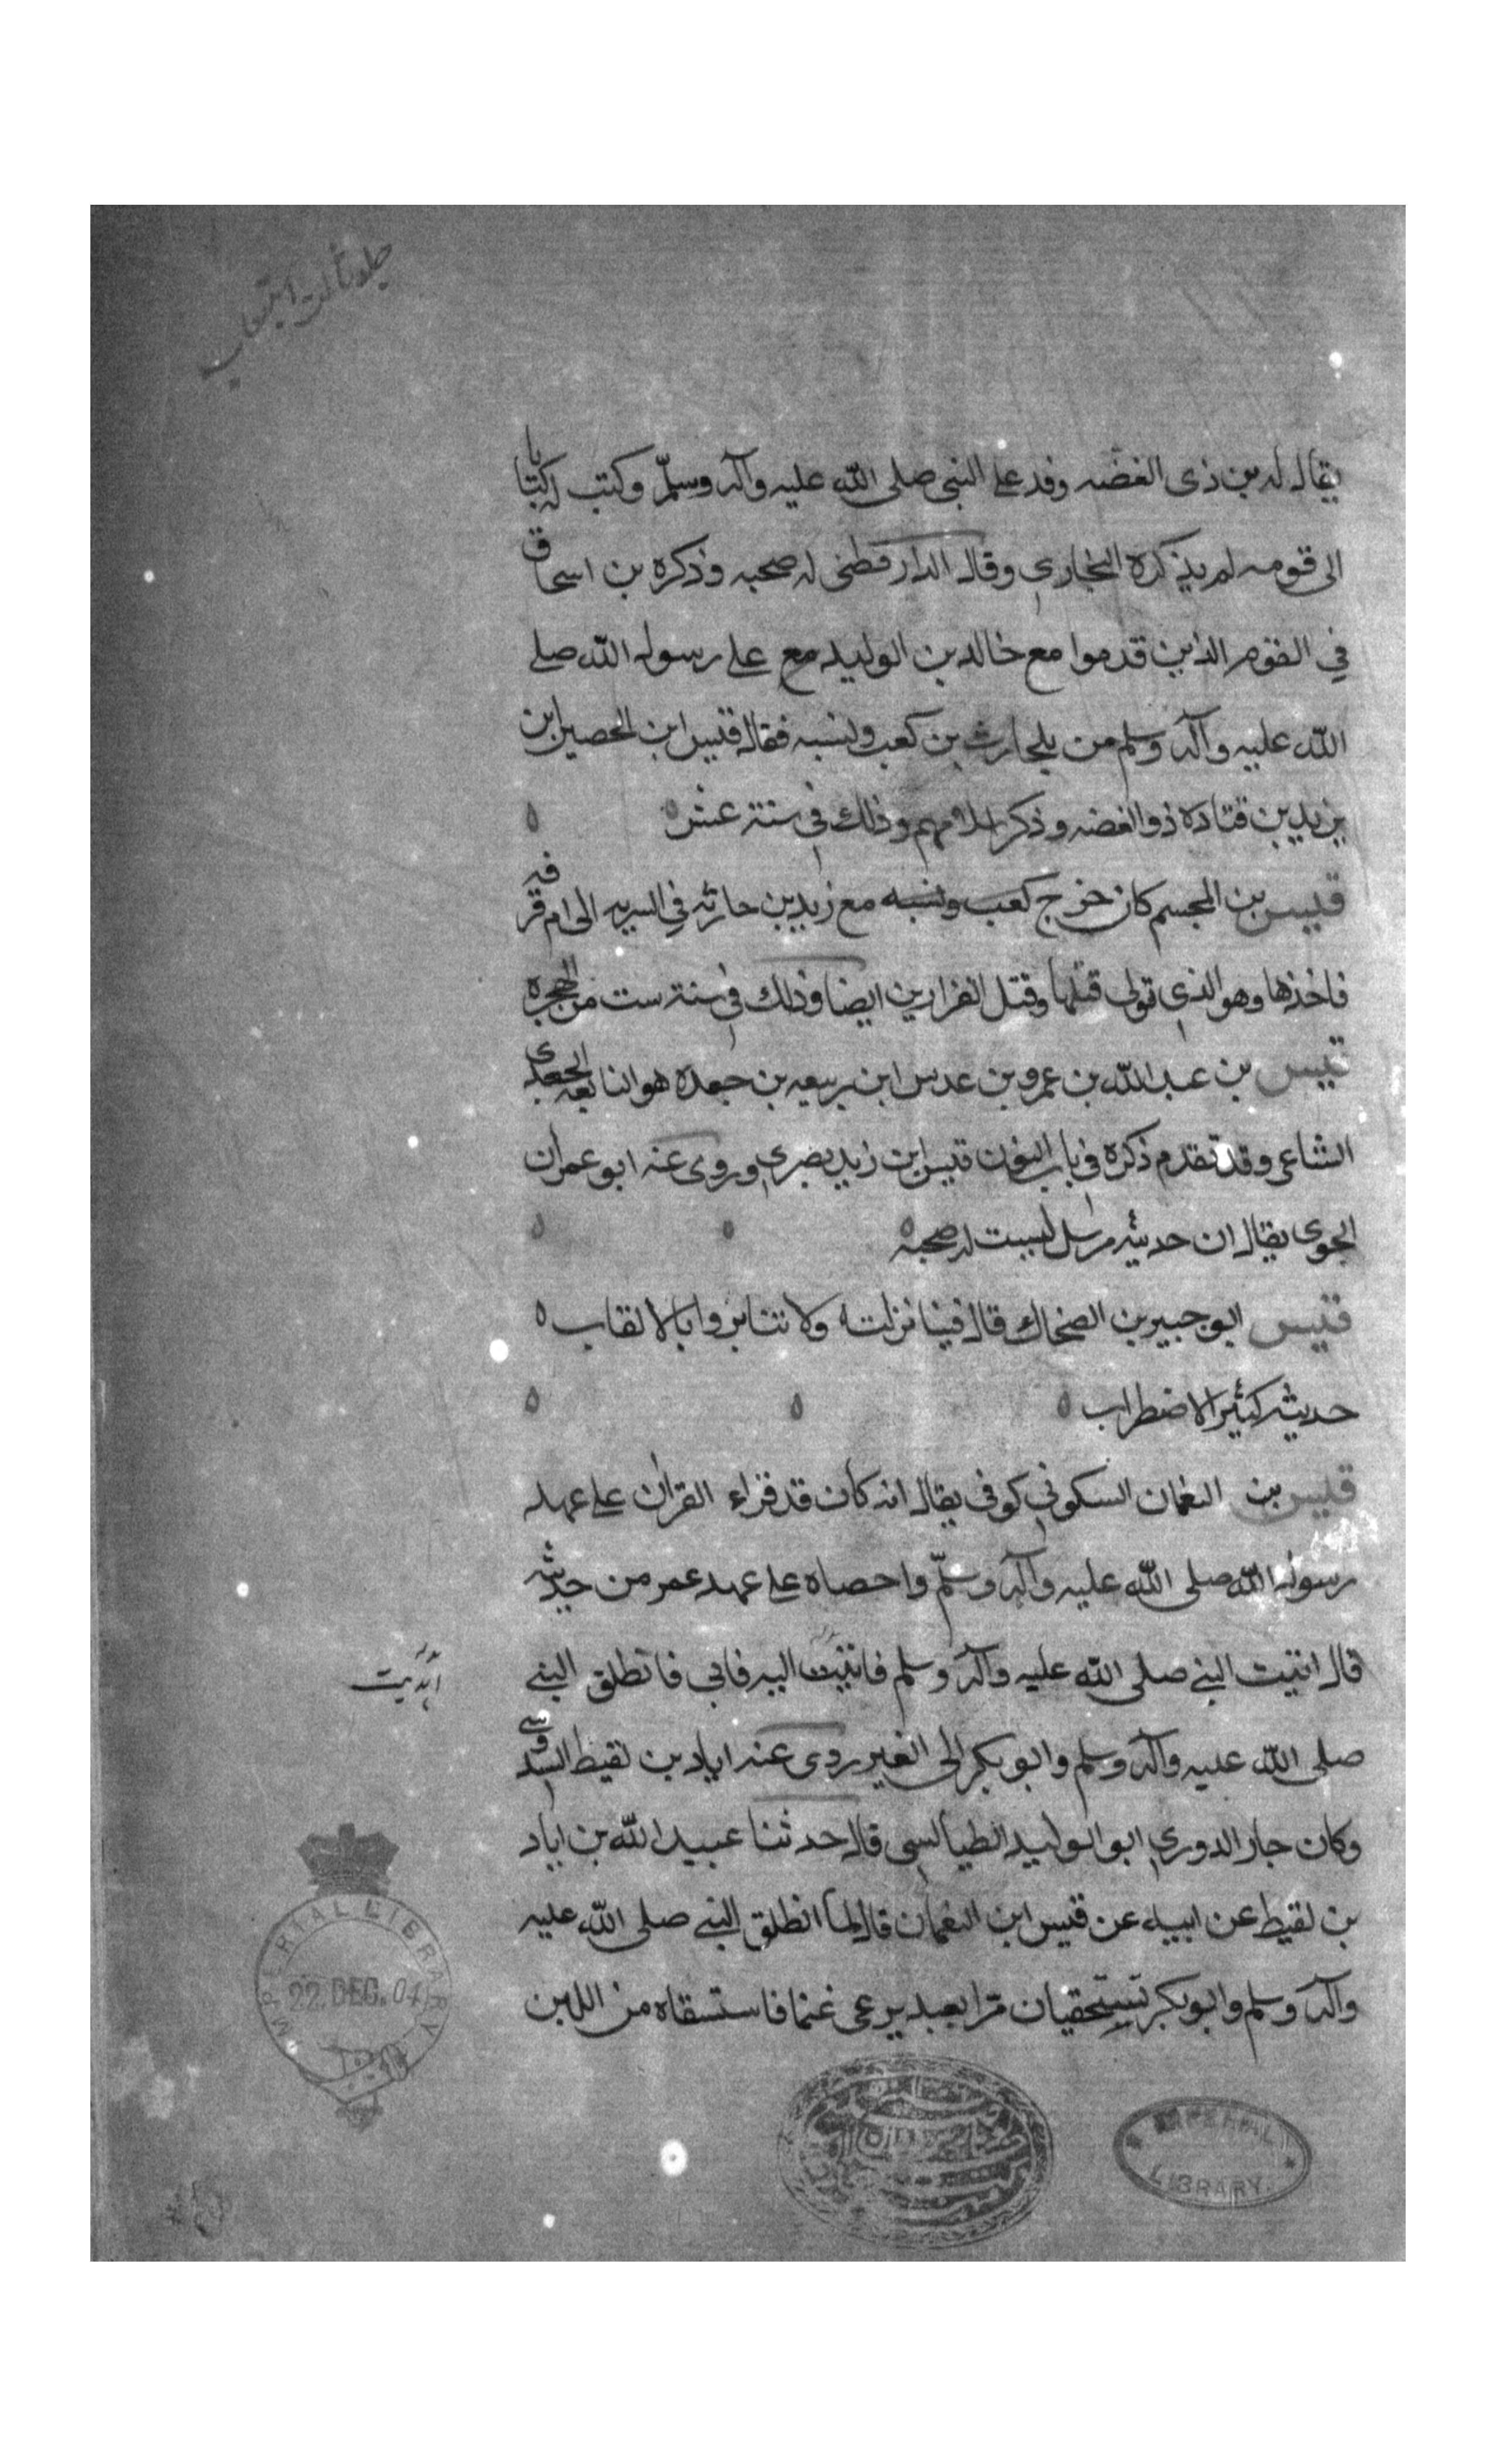 جلد ثالث استيعاب
يقال له بن ذى الغضه وفد على النبى صلى الله عليه وآله وسلّم وكتب له كتابا
الى قومه لم يذكره البخارى وقال الدارقطنى له صحبه وذكره بن اسحاق
في القوم الذين قدموا مع خالد بن الوليد مع على رسول الله صلى
الله عليه وآله وسلم من بلحارث بن كعب ونسبه فقال قيس ابن الحصين ابن
يزيد بن قتاده ذو الغضه وذكر اسلامهم وذلك في سنة عشر ه ه
قيس بن المجسم كان خرج كعب ونسبه مع زيد بن حارثه في السريه الى ام قرفه
فاخذها وهو الذى تولى قتلها وقتل الفزارين ايضا وذلك في سنة ست من الهجره
قيس بن عبد الله بن عمرو بن عدس ابن ربيعه بن جعده هو النابغه الجعدى
الشاعر وقد تقدم ذكره فى باب النون قيس ابن زيد بصرى وروى عنه ابو عمران
الجوى يقال ان حديثه مرسل ليست له صحبه ه ه ه
قيس ابو جبير بن الضحاك قال فينا نزلت ولا تنابزوا بالالقاب ه
حديثه كثير الاضطراب ه ه ه
قيس بن النعمان السكوني كوفى يقال انه كان قد قراء القران على عهد
رسول الله صلى الله عليه وآله وسلّم واحصاه على عهد عمر من حديثه
قال اتيت النبي صلى الله عليه وآله وسلم فاتيت اليه فابى فانطلق النبي
اهديت
صلى الله عليه وآله وسلم وابو بكر الى الغير ردى عنه اياد بن لقيط السدوسي
وكان جار الدورى ابو الوليد الطيالسى قال حدثنا عبيد الله بن اياد
بن لقيط عن ابيه عن قيس ابن النعمان قال لما انطلق النبي صلى الله عليه
وآله وسلم وابو بكر يستحقيان مرا بعبد يرعى غنما فاستسقاه من اللبن
IMPERIAL LIBRARY
22. DEC. 04
IMPERIAL
LIBRARY.